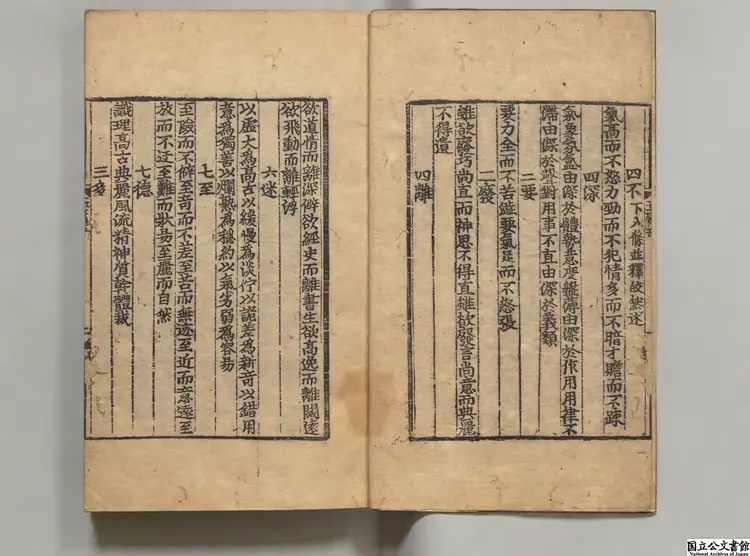 四不 下八條並釋皎然述
氣高而不怒力勁而不犯情多而不暗才贍而不疎
四深
氣象氛氳由深於體勢意度盤薄由深於作用用律不
滯由深於聲對用事不直由深於義類
二要
要力全而不苦澁要氣足而不怒張
二廢
雖欲廢巧尚直而神思不得直雖欲廢言尚意而典麗
不得遺
四離
欲道情而離深僻欲經史而離書生欲高逸而離闊遠
欲飛動而離輕浮
六迷
以虛大為高古以緩慢為淡佇以詭差為新奇以錯用
意為獨善以爛熟為穩約以氣劣弱為容易
七至
至險而不僻至奇而不差至苦而無迹至近而意遠至
放而不迂至難而狀易至麗而自然
七德
識理高古典麗風流精神質幹體裁
國立公文書館
National Archives of Japan